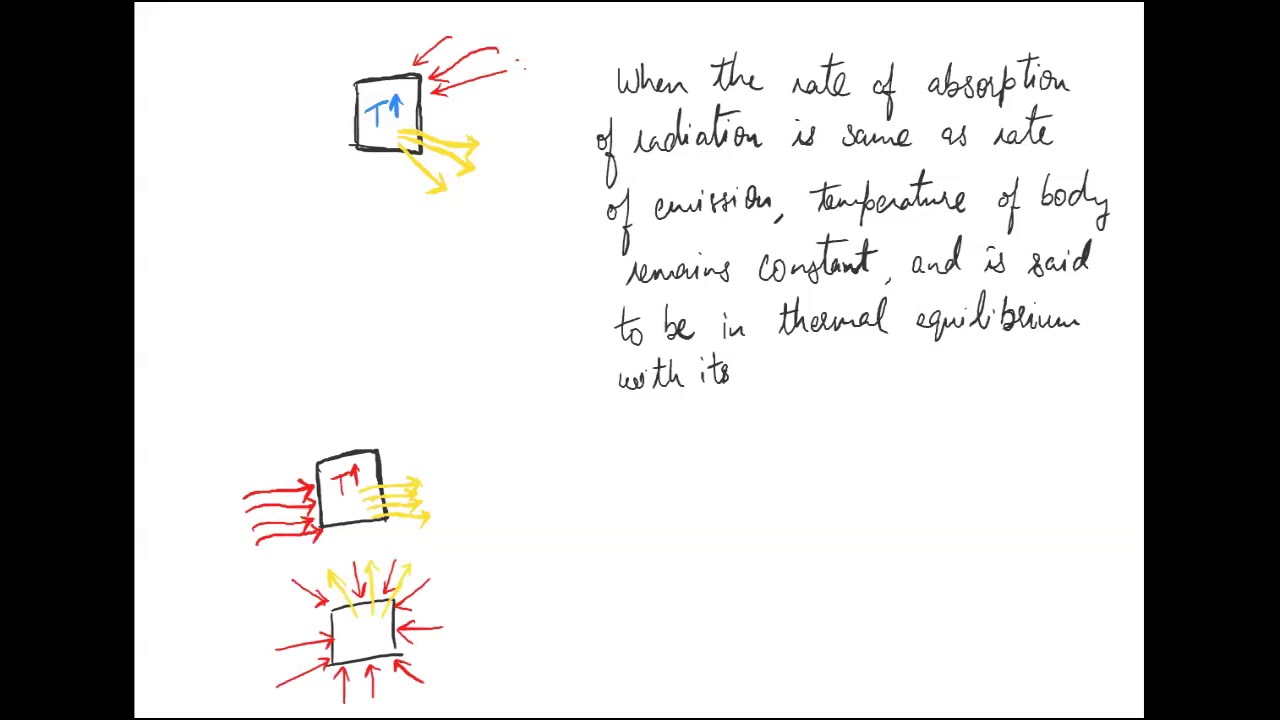 T↑
When the rate of absorption
of radiation is same as rate
of emission, temperature of body
remains constant, and is said
to be in thermal equilibrium
with its
T↑